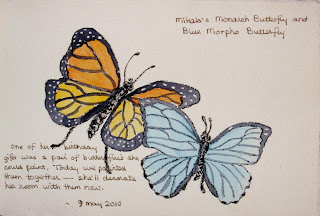 Mikala's Monarch Butterfly and
Blue Morpho Butterfly
One of her birthday
gifts was a pair of butterflies she
could paint. Today we painted
them together — she'll decorate
her room with them now.
- 9 May 2010